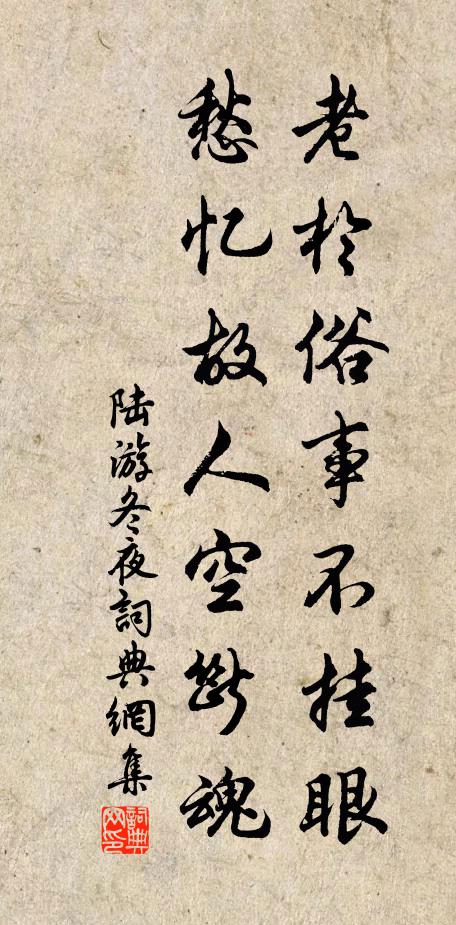 老於俗事不挂眼
愁忆故人空断魂
陆游冬夜詞典網集
詞典网印